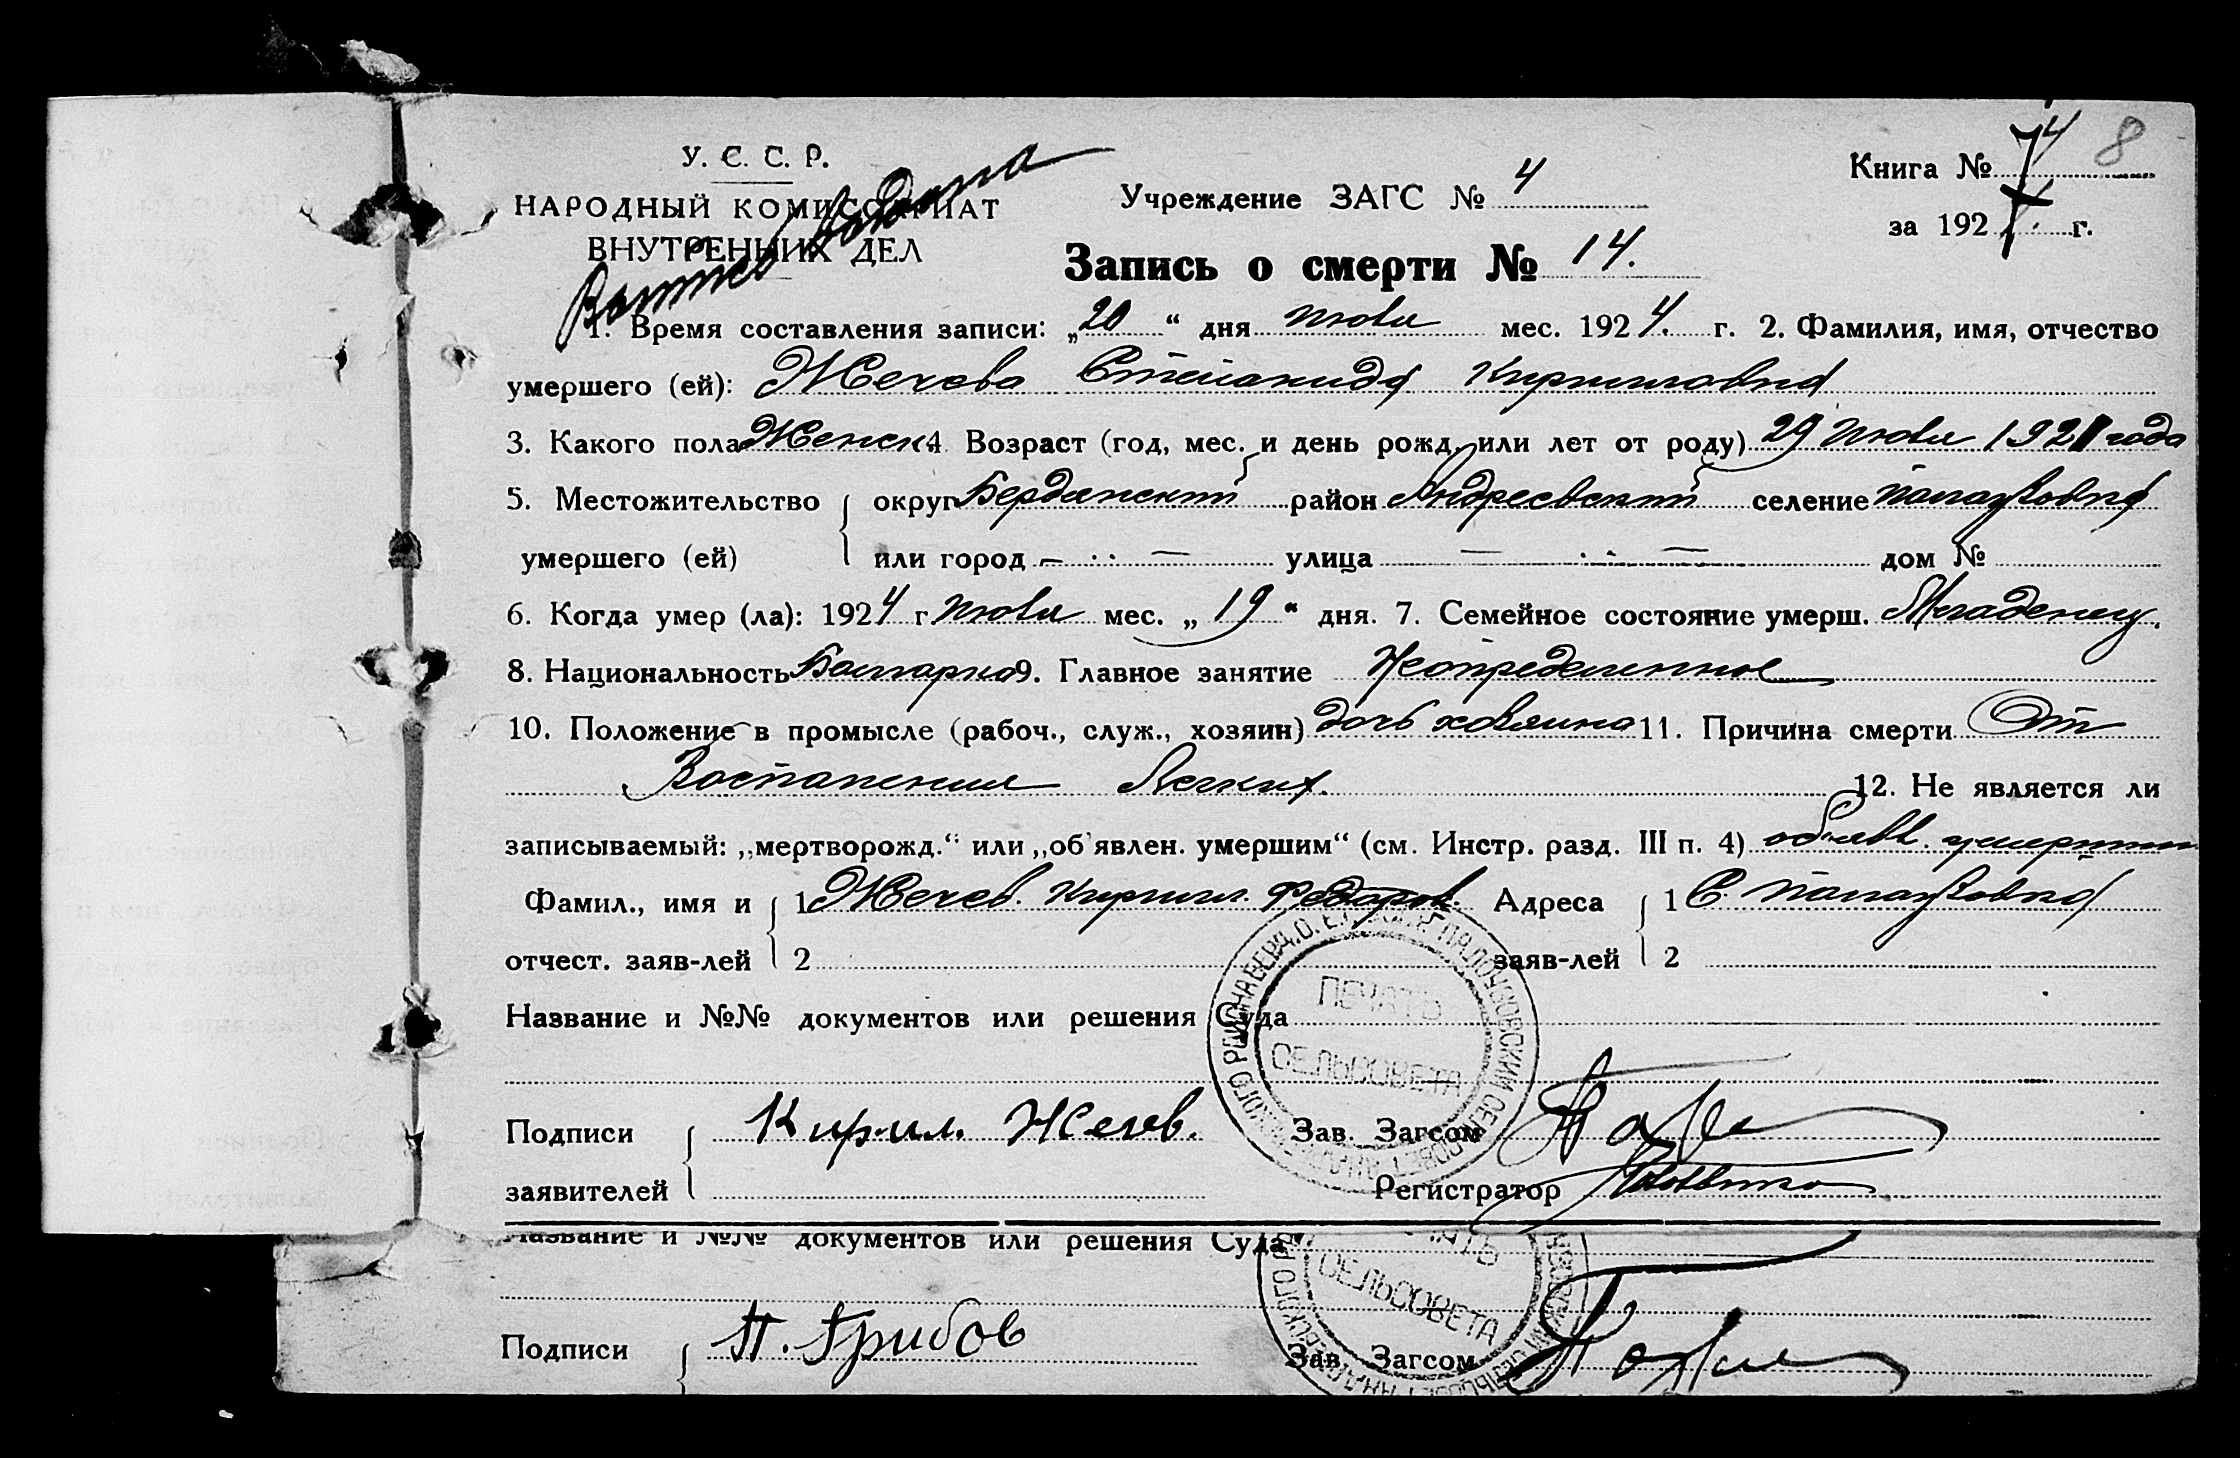 У. С. С. Р.
НАРОДНЫЙ КОМИССАРИАТ
ВНУТРЕННИХ ДЕЛ
Выписка выдана
Учреждение ЗАГС № 4
Книга № 4 8
за 192 г.
Запись о смерти № 14.
1. Время составления записи: „20“ дня Июля мес. 1924. г. 2. Фамилия, имя, отчество
умершего (ей): Жечева Степанида Кирилловна
3. Какого пола Женск. 4 Возраст (год, мес. и день рожд. или лет от роду) 29 Июля 1921 года
5. Местожительство округ Бердянский район Андреевский селение Палаузовка
умершего (ей) или город — улица — дом №
6. Когда умер (ла): 1924 г. Июля мес. „19“ дня. 7. Семейное состояние умерш. Младенец.
8. Национальность Болгарка 9. Главное занятие Неопределенное
10. Положение в промысле (рабоч., служ., хозяин) дочь хозяина 11. Причина смерти От
Воспаления Легких. 12. Не является ли
записываемый: „мертворожд.“ или „об'явлен. умершим“ (см. Инстр. разд. III п. 4) объявл. умершим
Фамил., имя и 1 Жечев. Кирилл. Федоров. Адреса 1 С. Палаузовка
отчест. заяв-лей 2 заяв-лей 2
Название и №№ документов или решения Суда
ПЕЧАТЬ
СЕЛЬСОВЕТА
Подписи Кирил. Жечев. Зав. Загсом
заявителей Регистратор
Название и №№ документов или решения Суда
СЕЛЬСОВЕТА
Подписи П. Грибов Зав. Загсом